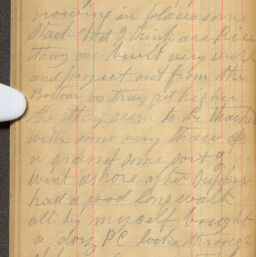 growing in places some
stack that I think are Rice
they are built very wide
and project out from the
Bottom as they get higher
the they seem to be thached
with some very thaco of
a grass of some sort I
went ashore after Supper
had a good long walk
all by myself bought
a doz PC looks through